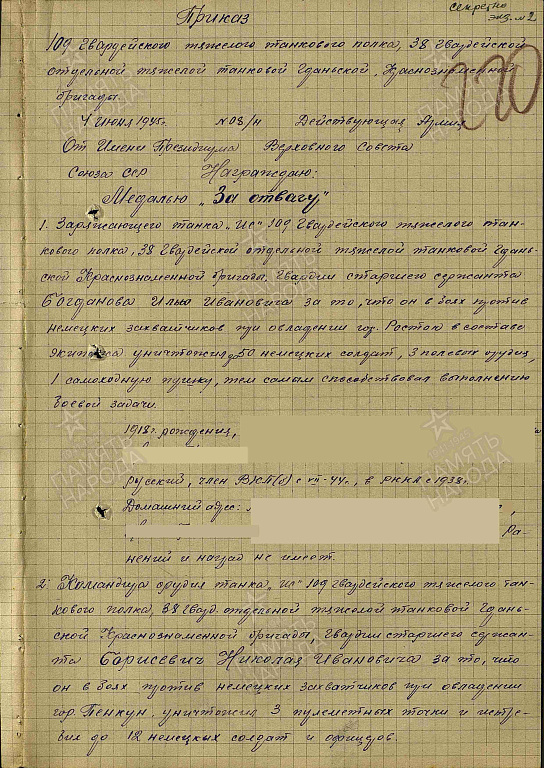 секретно
экз. № 2
Приказ
270
109 Гвардейского тяжелого танкового полка, 38 Гвардейской
отдельной тяжелой танковой Гданьской Краснознаменной
бригады.
4 июня 1945г. № 08/н Действующая Армия
От Имени Президиума Верховного Совета
Союза ССР Награждаю:
Медалью „За отвагу"
1. Заряжающего танка „Ис" 109 Гвардейского тяжелого тан-
кового полка, 38 Гвардейской отдельной тяжелой танковой Гдань-
ской Краснознаменной бригады, Гвардии старшего сержанта
Богданова Илью Ивановича за то, что он в боях против
немецких захватчиков при овладении гор. Росток в составе
экипажа уничтожил до 50 немецких солдат, 3 полевых орудия,
1 самоходную пушку, тем самым способствовал выполнению
боевой задачи.
1918г. рождения,
русский, член ВКП(б) с VII-44г., в РККА с 1938г.
Домашний адрес:
Ра-
нений и наград не имеет.
2. Командира орудия танка „Ис" 109 Гвардейского тяжелого тан-
кового полка, 38 Гвард. отдельной тяжелой танковой Гдань-
ской Краснознаменной бригады, Гвардии старшего сержан-
та Борисевич Николая Ивановича за то, что
он в боях против немецких захватчиков при овладении
гор. Пенкун, уничтожил 3 пулеметных точки и истре-
бил до 12 немецких солдат и офицеров.
ПАМЯТЬ
НАРОДА